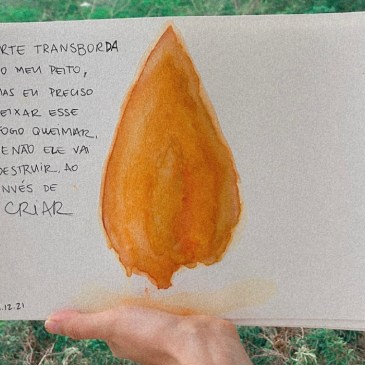 RTE TRANSBORDA
O MEU PEITO,
AS EU PRECISO
EIXAR ESSE
FOGO QUEIMAR,
E NÃO ELE VAI
DESTRUIR, AO
NVÉS DE
CRIAR
.12.21